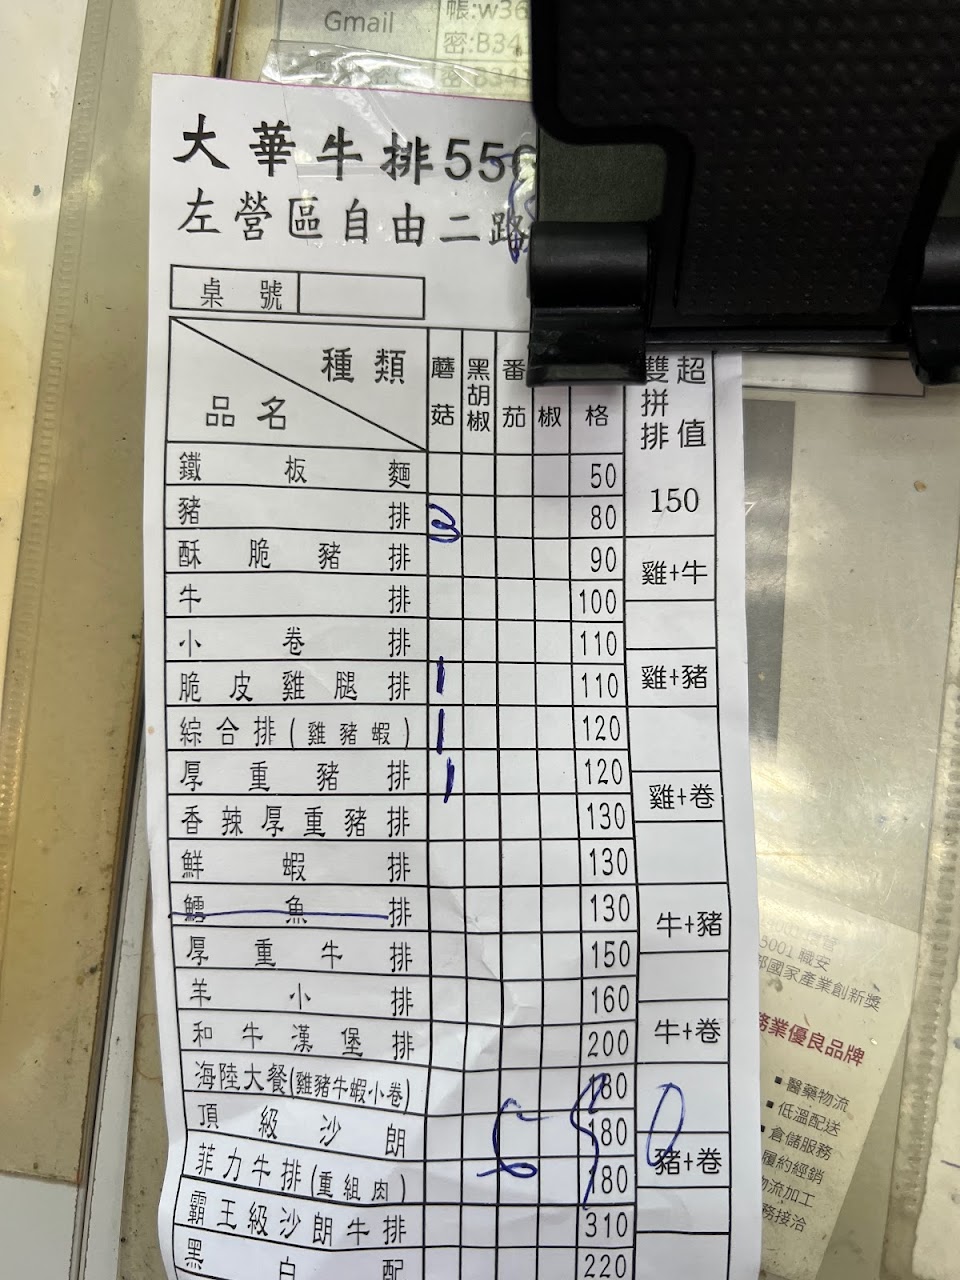 Gmail
帳:w36
密:B34
大華牛排55
左營區自由二路
桌號
種類
品名
蘑菇
黑胡椒
番茄
椒
格
超值
雙拼排
150
鐵板麵 50
豬排 3 80
酥脆豬排 90
牛排 100
小卷排 110
脆皮雞腿排 1 110
綜合排(雞豬蝦) 1 120
厚重豬排 1 120
香辣厚重豬排 130
鮮蝦排 130
鱈魚排 130
厚重牛排 150
羊小排 160
和牛漢堡排 200
海陸大餐(雞豬牛蝦小卷) 180
頂級沙朗 180
菲力牛排(重組肉) 180
霸王級沙朗牛排 310
黑白配 220
雞+牛
雞+豬
雞+卷
牛+豬
牛+卷
豬+卷
5001 職安
部國家產業創新獎
務業優良品牌
■醫藥物流
■低溫配送
■倉儲服務
履約經銷
物流加工
務接洽